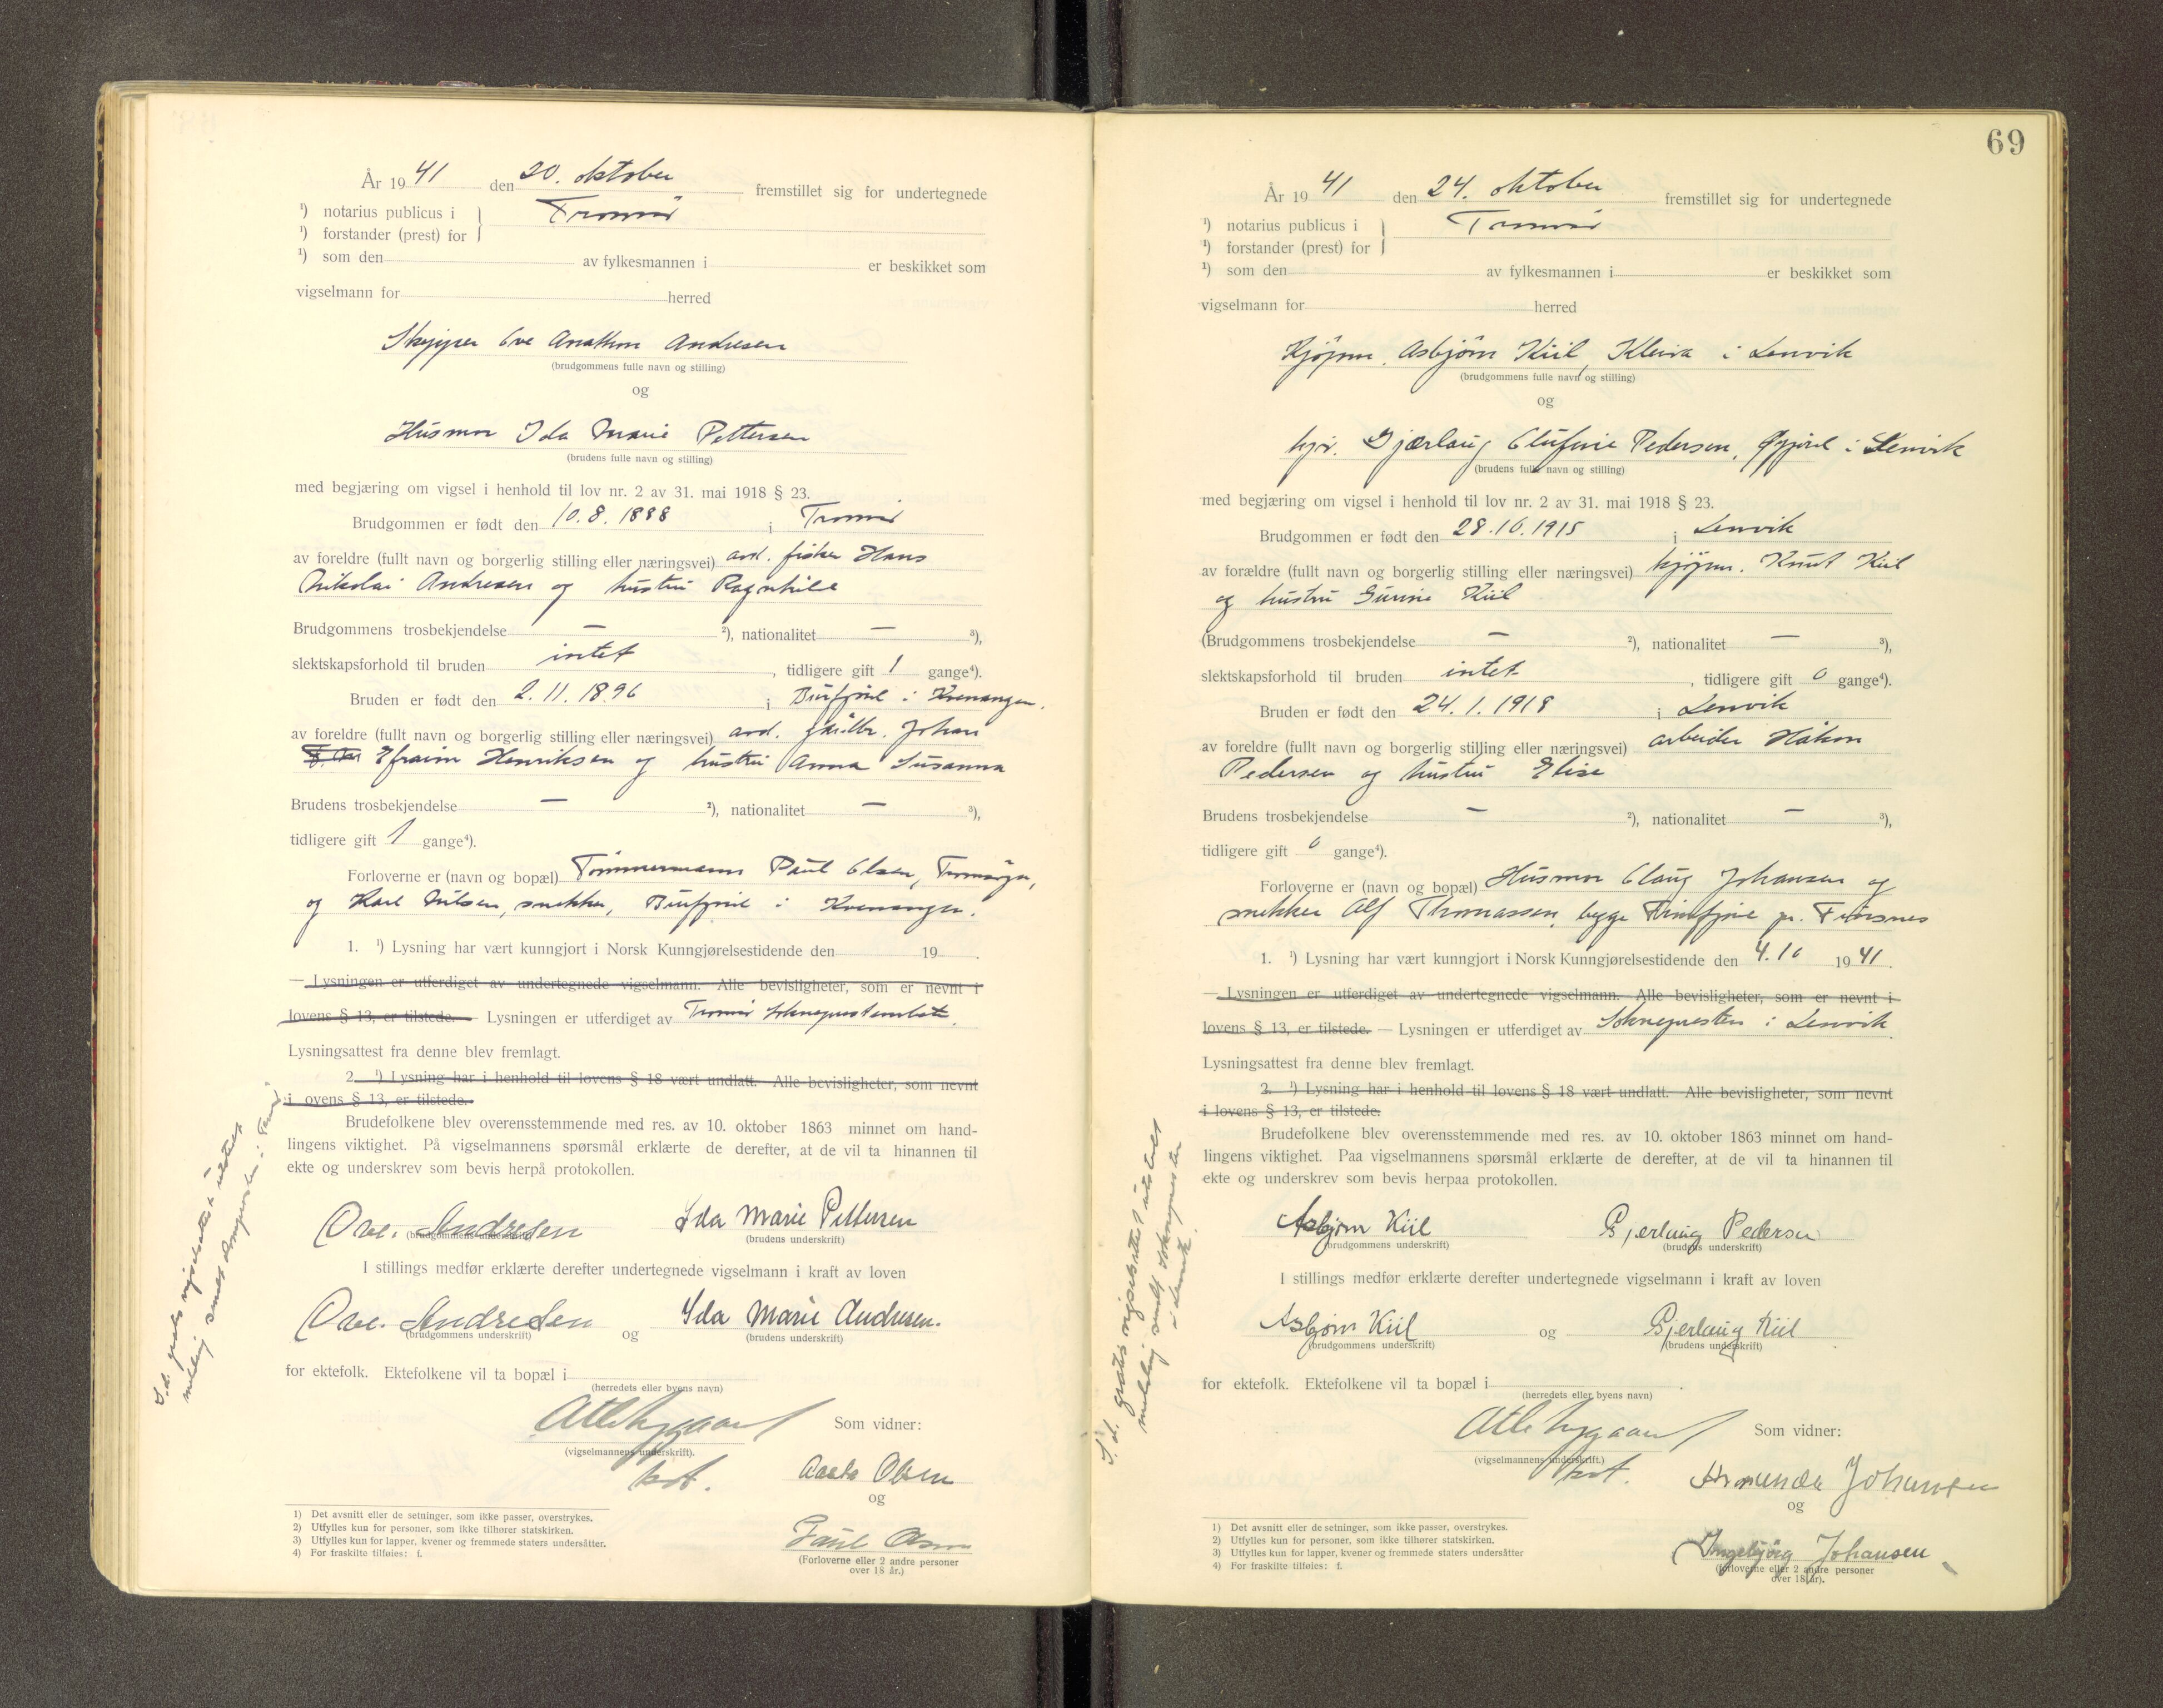 År 1941 den 20. oktober fremstillet sig for undertegnede
¹) notarius publicus i Tromsø
¹) forstander (prest) for
¹) som den av fylkesmannen i er beskikket som
vigselmann for herred
Skipper Ove Anathon Andresen
(brudgommens fulle navn og stilling)
og
Husmor Ida Marie Pettersen
(brudens fulle navn og stilling)
med begjæring om vigsel i henhold til lov nr. 2 av 31. mai 1918 § 23.
Brudgommen er født den 10.8.1888 i Tromsø
av foreldre (fullt navn og borgerlig stilling eller næringsvei) avd. fisker Hans
Nikolai Andresen og hustru Ragnhild
Brudgommens trosbekjendelse — ²), nationalitet — ³),
slektskapsforhold til bruden intet, tidligere gift 1 gange⁴).
Bruden er født den 2.11.1896 i Burfjord i Kvenangen.
av foreldre (fullt navn og borgerlig stilling eller næringsvei) avd. gårdbr. Johan
Efraim Henriksen og hustru Anna Susanna
Brudens trosbekjendelse — ²), nationalitet — ³),
tidligere gift 1 gange⁴).
Forloverne er (navn og bopæl) Tømmermann Paul Olsen, Tromsøya,
og Karl Nilsen, snekker, Burfjord i Kvenangen.
1. ¹) Lysning har vært kunngjort i Norsk Kunngjørelsestidende den 19 .
— Lysningen er utferdiget av undertegnede vigselmann. Alle bevisligheter, som er nevnt i
lovens § 13, er tilstede. — Lysningen er utferdiget av Tromsø Sokneprestembete.
Lysningsattest fra denne blev fremlagt.
2. ¹) Lysning har i henhold til lovens § 18 vært undlatt. Alle bevisligheter, som nevnt
i ovens § 13, er tilstede.
Brudefolkene blev overensstemmende med res. av 10. oktober 1863 minnet om hand-
lingens viktighet. På vigselmannens spørsmål erklærte de derefter, at de vil ta hinannen til
ekte og underskrev som bevis herpå protokollen.
Ove. Andresen Ida Marie Pettersen
(brudgommens underskrift) (brudens underskrift)
I stillings medfør erklærte derefter undertegnede vigselmann i kraft av loven
Ove. Andresen og Ida Marie Andresen.
(brudgommens underskrift) (brudens underskrift)
for ektefolk. Ektefolkene vil ta bopæl i
(herredets eller byens navn)
Som vidner:
(vigselmannens underskrift).
Aasta Olsen
og
Paul Olsen
(Forloverne eller 2 andre personer
over 18 år.)
1) Det avsnitt eller de setninger, som ikke passer, overstrykes.
2) Utfylles kun for personer, som ikke tilhører statskirken.
3) Utfylles kun for lapper, kvener og fremmede staters undersåtter.
4) For fraskilte tilføies: f.
S.d. gratis vigselsattest utstedt
melding sendt soknepresten i Tromsø
69
År 1941 den 24. oktober fremstillet sig for undertegnede
¹) notarius publicus i Tromsø
¹) forstander (prest) for
¹) som den av fylkesmannen i er beskikket som
vigselmann for herred
Kjøpm. Asbjørn Kiil, Kleiva i Lenvik
(brudgommens fulle navn og stilling)
og
Gjærlaug Olufine Pedersen, i Lenvik
(brudens fulle navn og stilling)
med begjæring om vigsel i henhold til lov nr. 2 av 31. mai 1918 § 23.
Brudgommen er født den 28.10.1915 i Lenvik
av forældre (fullt navn og borgerlig stilling eller næringsvei) kjøpm. Knut Kiil
og hustru Gurine Kiil
(Brudgommens trosbekjendelse — ²), nationalitet — ³),
slektskapsforhold til bruden intet, tidligere gift 0 gange⁴).
Bruden er født den 24.1.1918 i Lenvik
av foreldre (fullt navn og borgerlig stilling eller næringsvei) arbeider Håkon
Pedersen og hustru Elise
Brudens trosbekjendelse — ²), nationalitet — ³),
tidligere gift 0 gange⁴).
Forloverne er (navn og bopæl) Husmor Olaug Johansen og
snekker Alf Thomassen, begge Finnfjord pr. Finnsnes
1. ¹) Lysning har vært kunngjort i Norsk Kunngjørelsestidende den 4.10 1941.
— Lysningen er utferdiget av undertegnede vigselmann. Alle bevisligheter, som er nevnt i
lovens § 13, er tilstede. — Lysningen er utferdiget av Soknepresten i Lenvik.
Lysningsattest fra denne blev fremlagt.
2. ¹) Lysning har i henhold til lovens § 18 vært undlatt. Alle bevisligheter, som nevnt
i lovens § 13, er tilstede.
Brudefolkene blev overensstemmende med res. av 10. oktober 1863 minnet om hand-
lingens viktighet. Paa vigselmannens spørsmål erklærte de derefter, at de vil ta hinannen til
ekte og underskrev som bevis herpaa protokollen.
Asbjørn Kiil Gjerlaug Pedersen
(brudgommens underskrift) (brudens underskrift)
I stillings medfør erklærte derefter undertegnede vigselmann i kraft av loven
Asbjørn Kiil og Gjerlaug Kiil
(brudgommens underskrift) (brudens underskrift)
for ektefolk. Ektefolkene vil ta bopæl i .
(herredets eller byens navn)
Som vidner:
(vigselmannens underskrift.)
Johansen
og
Ingebjørg Johansen
(forloverne eller 2 andre personer
over 18 år).
1) Det avsnitt eller de setninger, som ikke passer, overstrykes.
2) Utfylles kun for personer, som ikke tilhører statskirken.
3) Utfylles kun for lapper, kvener og fremmede staters undersåtter
4) For fraskilte tilføies: f.
S.d. gratis vigselsattest utstedt
melding sendt soknepresten
i Lenvik.